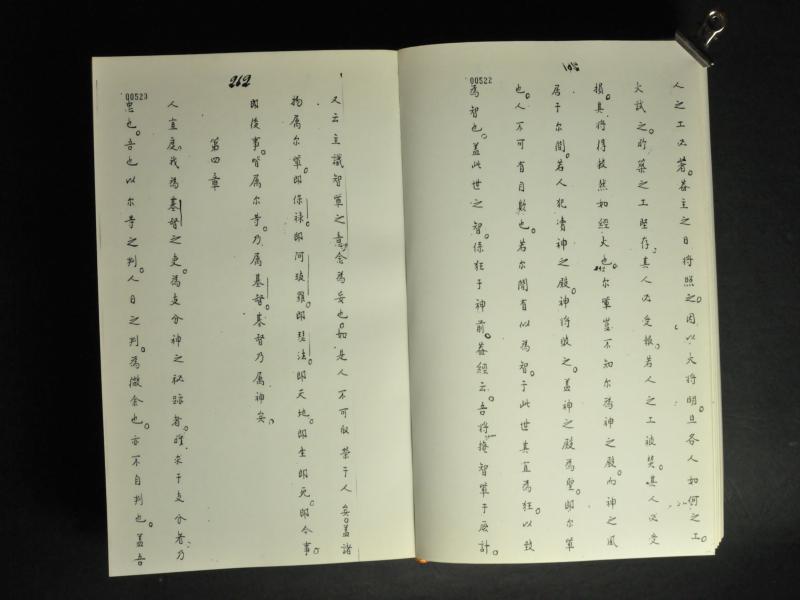 00522
人之工必著。蓋主之日將照之。因以火將明。且各人如何之工。
火試之。昨築之工堅存。其人必受報。若人之工被焚。其人必受
損。其將得救然如經火也。尔輩豈不知尔為神之殿。而神之風
居于尔間。若人犯凟神之殿。神將敗之。蓋神之殿為聖。即尔輩
也。人不可有自欺也。若尔間有以為智。于此世其宜為狂。以致
為智也。蓋此世之智。係狂于神前。蓋經云。吾將掩智輩于厥計。
262
00523
又云主識智輩之意念為妄也。如是人不可取榮于人矣。蓋諸
物属尔輩。即保禄。即阿玻羅。即瑟法。即天地。即生即死。即今事。
即後事。皆属尔等。乃属基督。基督乃属神矣。
第四章
人宜度我為基督之吏。為支分神之秘跡者。求于支分者。乃
忠也。吾也以尔等之判。人日之判。為微余也。亦不自判也。蓋吾